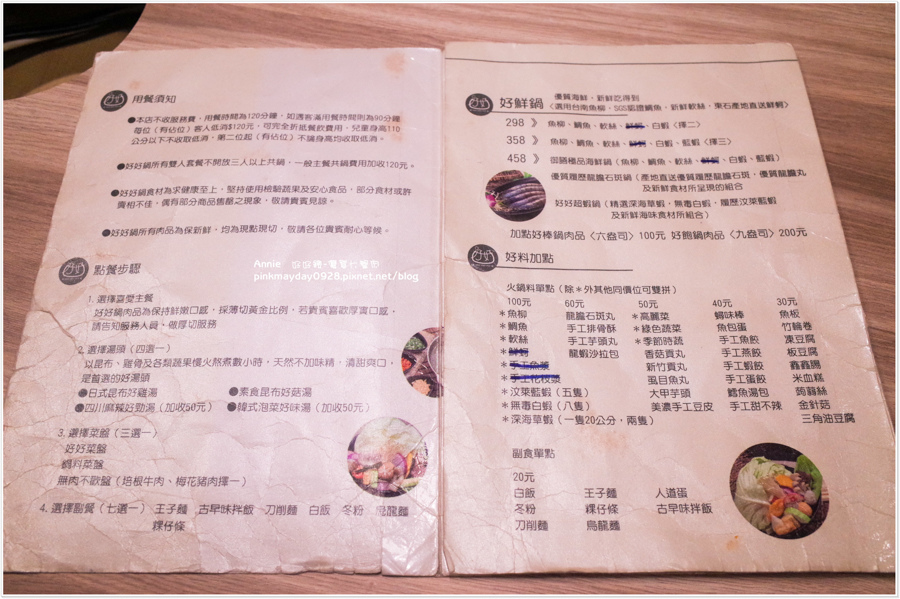 用餐須知
●本店不收服務費，用餐時間為120分鐘，如遇客滿用餐時間則為90分鐘
每位（有佔位）客人低消$120元，可完全折抵餐飲費用，兒童身高110
公分以下不收取低消。第二位起（有佔位）不論身高均收取低消。
●好好鍋所有雙人套餐不開放三人以上共鍋，一般主餐共鍋費用加收120元。
●好好鍋食材為求健康至上，堅持使用檢驗蔬果及安心食品，部分食材或許
賣相不佳。偶有部分商品售罄之現象，敬請貴賓見諒。
●好好鍋所有肉品為保新鮮，均為現點現切，敬請各位貴賓耐心等候。
Annie
pinkmayday0928.pixnet.net/blog
點餐步驟
1. 選擇喜愛主餐
好好鍋肉品為保持鮮嫩口感，採薄切黃金比例，若貴賓喜歡厚實口感，
請告知服務人員，做厚切服務
2. 選擇湯頭（四選一）
以昆布、雞骨及各類蔬果慢火熬煮數小時，天然不加味精，清甜爽口，
是首選的好湯頭
●日式昆布好雞湯 ●素食昆布好菇湯
●四川麻辣好勁湯（加收50元） ●韓式泡菜好味湯（加收50元）
3. 選擇菜盤（三選一）
好好菜盤
鍋料菜盤
無肉不歡盤（培根牛肉、梅花豬肉擇一）
4. 選擇副餐（七選一） 王子麵 古早味拌飯 刀削麵 白飯 冬粉 烏龍麵
粿仔條
好鮮鍋 優質海鮮，新鮮吃得到
〈選用台南魚柳，SGS認證鯛魚，新鮮軟絲，東石產地直送鮮蚵〉
298 》 魚柳、鯛魚、軟絲、鮮蚵、白蝦〈擇二〉
358 》 魚柳、鯛魚、軟絲、鮮蚵、白蝦、藍蝦〈擇三〉
458 》 御膳極品海鮮鍋（魚柳、鯛魚、軟絲、鮮蚵、白蝦、藍蝦）
優質履歷龍膽石斑鍋（產地直送優質履歷龍膽石斑，優質龍膽丸
及新鮮食材所呈現的組合
好好超蝦鍋（精選深海草蝦，無毒白蝦，履歷汶萊藍蝦
及新鮮海味食材所組合）
加點好棒鍋肉品〈六盎司〉100元 好飽鍋肉品〈九盎司〉200元
好料加點
火鍋料單點（除＊外其他同價位可雙拼）
100元 60元 50元 40元 30元
＊魚柳 龍膽石斑丸 ＊高麗菜 蟳味棒 魚板
＊鯛魚 手工排骨酥 ＊綠色蔬菜 魚包蛋 竹輪卷
＊軟絲 手工芋頭丸 ＊季節時蔬 手工魚餃 凍豆腐
＊鮮蚵 龍蝦沙拉包 香菇貢丸 手工燕餃 板豆腐
＊手工魚漿 新竹貢丸 手工蝦餃 鑫鑫腸
＊手工花枝漿 虱目魚丸 手工蛋餃 米血糕
＊汶萊藍蝦（五隻） 大甲芋頭 鱈魚湯包 蒟蒻絲
＊無毒白蝦（八隻） 美濃手工豆皮 手工甜不辣 金針菇
＊深海草蝦（一隻20公分，兩隻） 三角油豆腐
副食單點
20元
白飯 王子麵 人道蛋
冬粉 粿仔條 古早味拌飯
刀削麵 烏龍麵